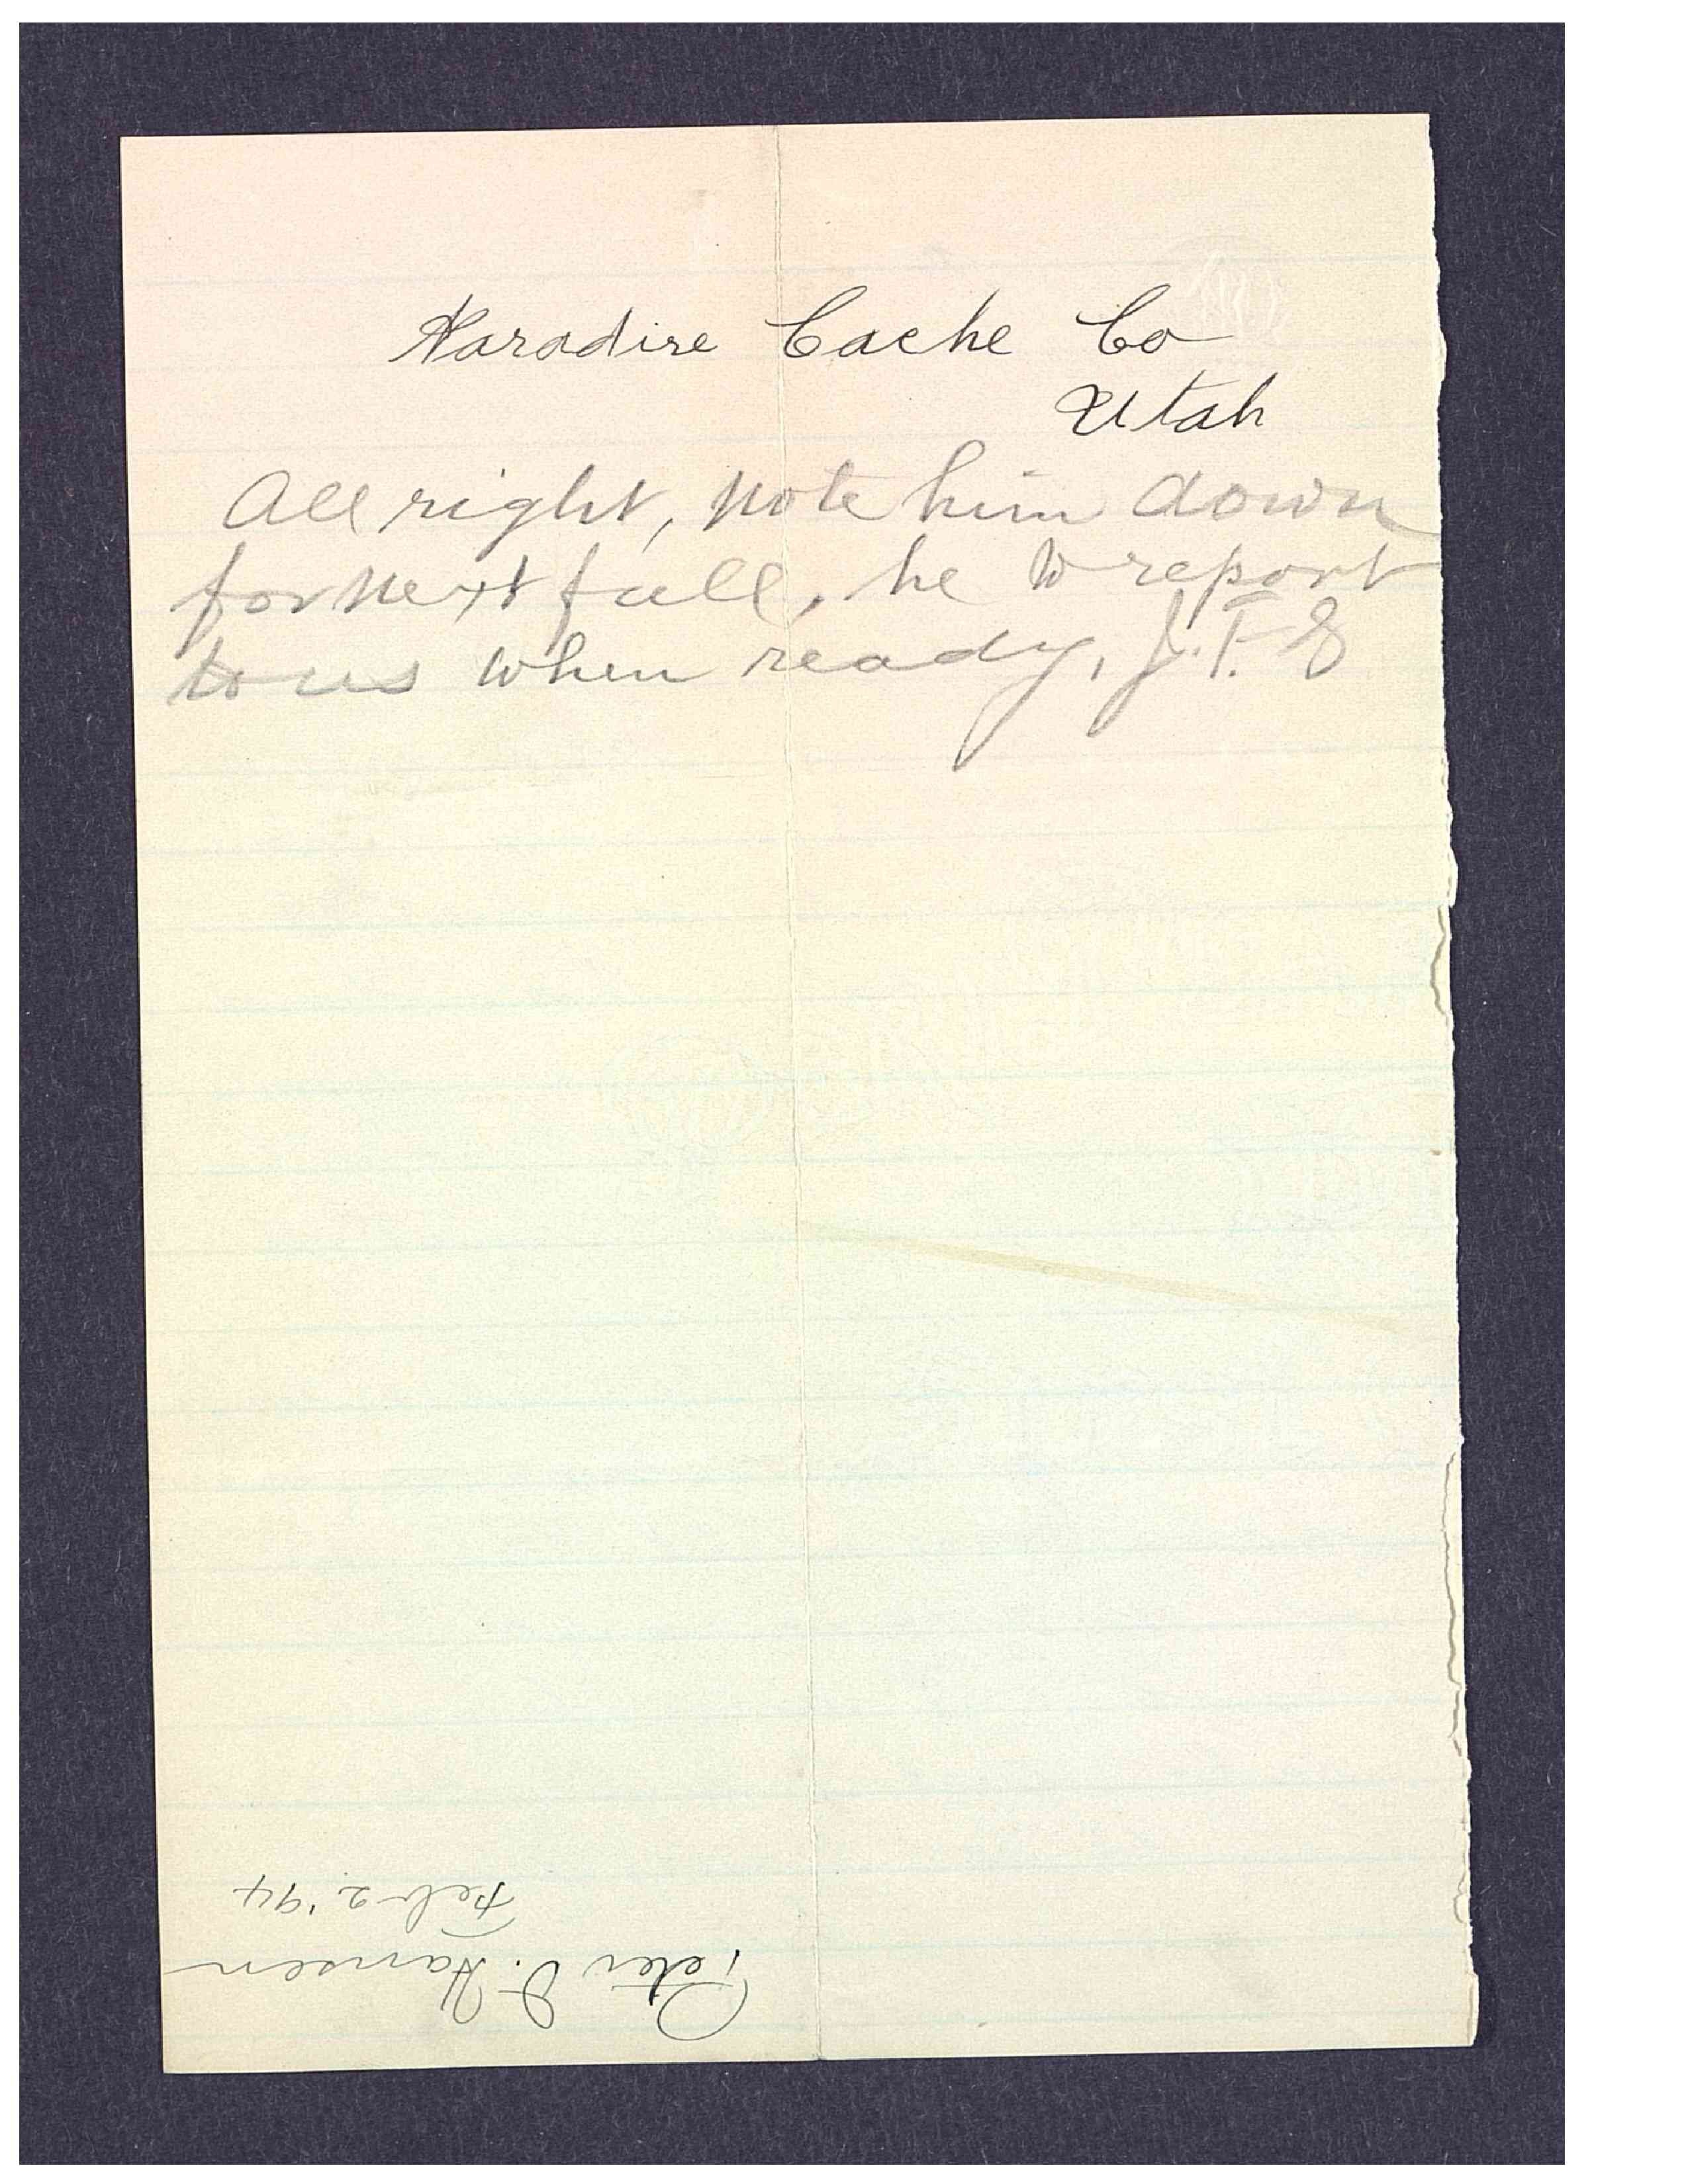 Paradise Cache Co
Utah
All right, note him down
for next fall, he to report
to us when ready, J.F.S
Peter F. Hansen
Feb 2 '94